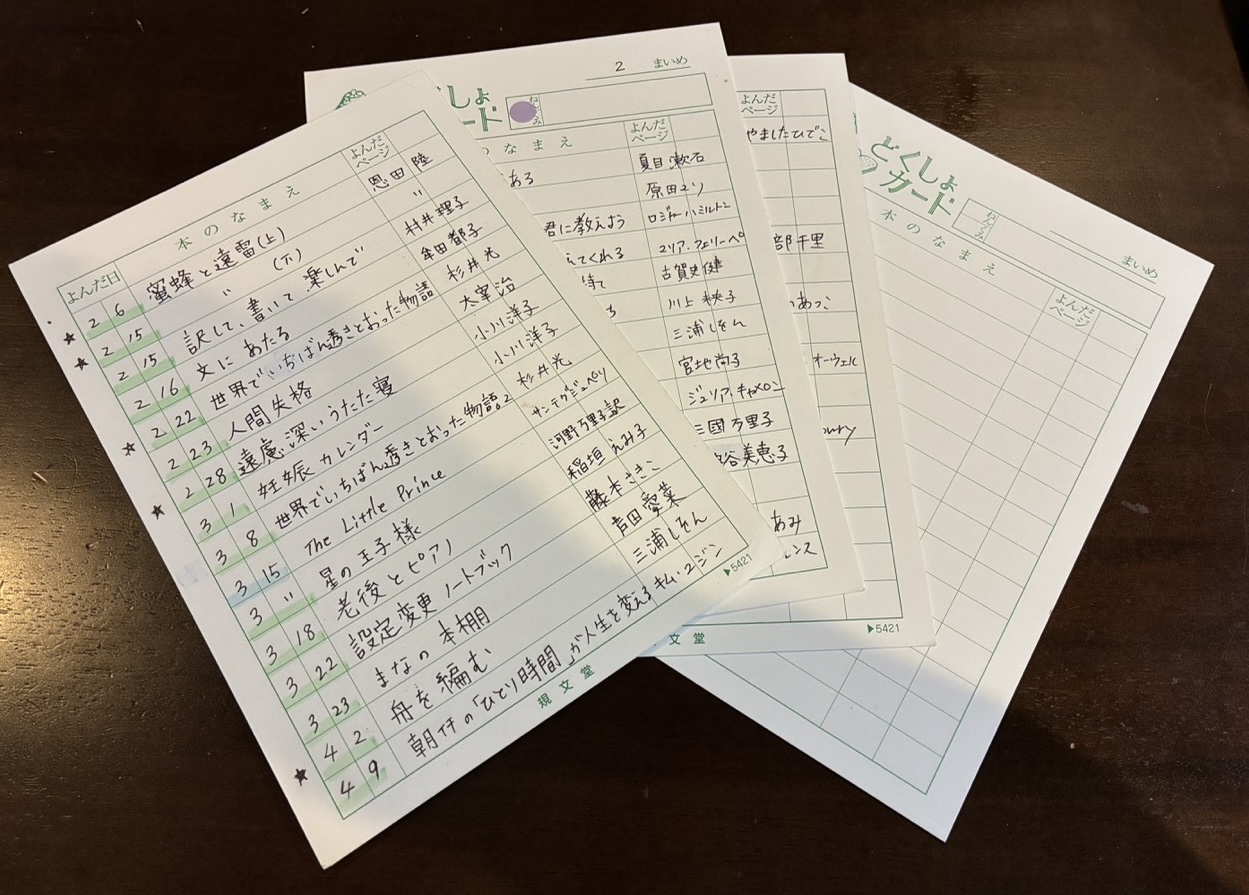 よんだ日 本のなまえ よんだページ
2 6 蜜蜂と遠雷(上) 恩田 陸
2 15 〃 (下) 〃
2 15 訳して、書いて 楽しんで 村井理子
2 16 文に あたる 牟田都子
2 22 世界でいちばん透きとおった物語 杉井光
2 23 人間失格 太宰治
2 28 遠慮深いうたた寝 小川洋子
3 1 妊娠カレンダー 小川洋子
3 8 世界でいちばん透きとおった物語2 杉井光
3 15 The Little Prince サンテグジュペリ
3 〃 星の王子様 河野万里子訳
3 18 老後とピアノ 稲垣えみ子
3 22 設定変更ノートブック 藤本さきこ
3 23 まなの本棚 吉田愛菜
4 2 舟を編む 三浦しをん
4 9 朝イチの「ひとり時間」が人生を変える キム・ユジン
規文堂
▶5421
2 まいめ
くしょ
ード
ねんくみ
のなまえ よんだページ
ある 夏目漱石
原田マリ
君に教えよう ロジャー・ハミルトン
えてくれる ユリア・フェリーペ
古賀史健
川上未央子
三浦しをん
宮地尚子
ジュリア・キャメロン
三國万里子
谷美恵子
あみ
レンス
文堂
▶5421
よんだページ
やましたひでこ
部千里
あつこ
オーウェル
ury
どくしょ
カード
ねんくみ
まいめ
本のなまえ よんだページ